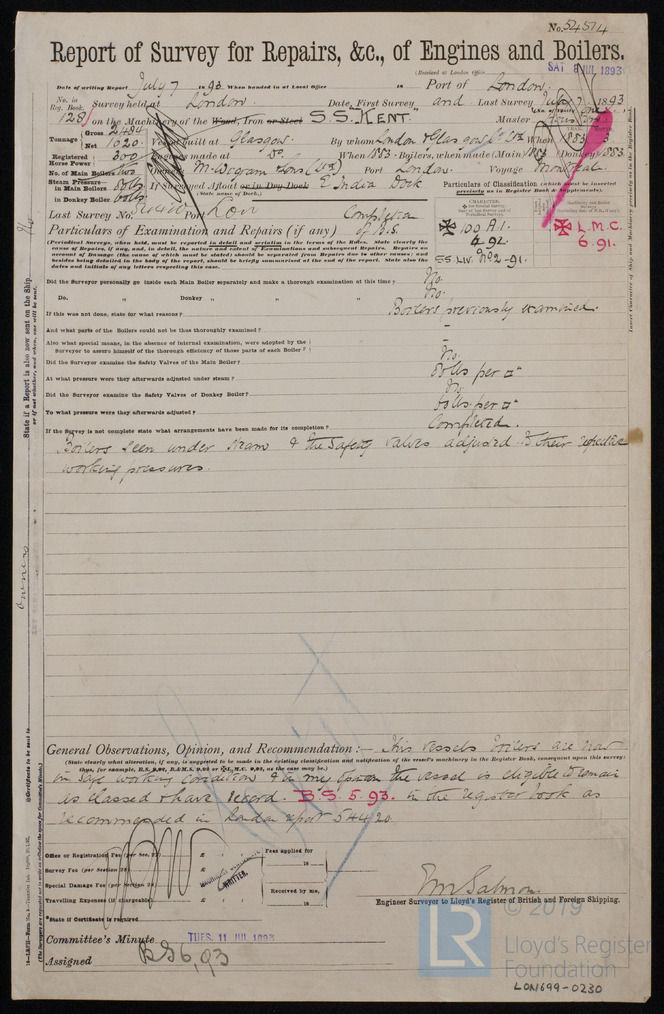 No. 54514
Report of Survey for Repairs, &c., of Engines and Boilers.
(Received at London Office SAT 8 JUL 1893
Date of writing Report July 7 1893 When handed in at Local Office 18 Port of London
No. in Reg. Book. Survey held at London Date, First Survey and Last Survey July 7 1893
128 on the Machinery of the Wood, Iron or Steel S.S. KENT. Master
Tonnage Gross 2484
Net 1020 Vessel built at Glasgow By whom London & Glasgow Co Ld When 1883
Registered Horse Power 300 Engines made at Do. When 1883 Boilers, when made (Main) 1883 (Donkey) 1883
No. of Main Boilers two Owners M. Wigram & Sons (Ld) Port London Voyage Montreal
Steam Pressure in Main Boilers 80lbs If Surveyed Afloat or in Dry Dock E India Dock
in Donkey Boiler (State name of Dock.)
Particulars of Classification (which must be inserted precisely as in Register Book & Supplements).
Last Survey No. Port Lon Completion of B.S.
Particulars of Examination and Repairs (if any)
100 A.1.
4.92.
SS. Lon. No 2-91.
L.M.C.
6.91.
(Periodical Surveys, when held, must be reported in detail and seriatim in the terms of the Rules. State clearly the cause of Repairs, if any, and, in detail, the nature and extent of Examinations and subsequent Repairs. Repairs on account of Damage (the cause of which must be stated) should be separated from Repairs due to other causes; and besides being detailed in the body of the report, should be briefly summarised at the end of the report. State also the dates and initials of any letters respecting this case.)
Did the Surveyor personally go inside each Main Boiler separately and make a thorough examination at this time? No.
Do. " Donkey " " " " No.
If this was not done, state for what reasons? Boilers previously examined.
And what parts of the Boilers could not be thus thoroughly examined? -
Also what special means, in the absence of internal examination, were adopted by the Surveyor to assure himself of the thorough efficiency of those parts of each Boiler? -
Did the Surveyor examine the Safety Valves of the Main Boiler? No.
At what pressure were they afterwards adjusted under steam? 80lbs per □"
Did the Surveyor examine the Safety Valves of Donkey Boiler? No
To what pressure were they afterwards adjusted? 60lbs per □"
If the Survey is not complete state what arrangements have been made for its completion? Completed.
Boilers seen under steam & the Safety valves adjusted to their respective
working pressures.
State if a Report is also now sent on the Ship
or if not, whether, and when, one will be sent.
Insert Character of Ship and Machinery precisely as in the Register Book.
owners
General Observations, Opinion, and Recommendation:— This vessels boilers are now
(State clearly what alteration, if any, is suggested to be made in the existing classification and notification of the vessel's machinery in the Register Book, consequent upon this survey;
thus, for example, B.S. 9,93, B.&M.S. 9,93 or L.M.C. 9,93, as the case may be.)
in safe working condition & in my opinion the vessel is eligible to remain
as classed & have record. B.S. 5.93. in the register book as
recommended in London report 54420.
Office or Registration Fee (per Sec. 27) £ : : Fees applied for
Survey Fee (per Section 28) £ : : 18
Special Damage Fee (per Section 28) £ : : Received by me,
Travelling Expenses (if chargeable) £ : : 18
WRITTEN.
*State if Certificate is required
E M Salmon
Engineer Surveyor to Lloyd's Register of British and Foreign Shipping.
Committee's Minute TUES. 11 JUL 1893
Assigned BS 6,93
© 2019
LR
Lloyd's Register
Foundation
LON699-0230